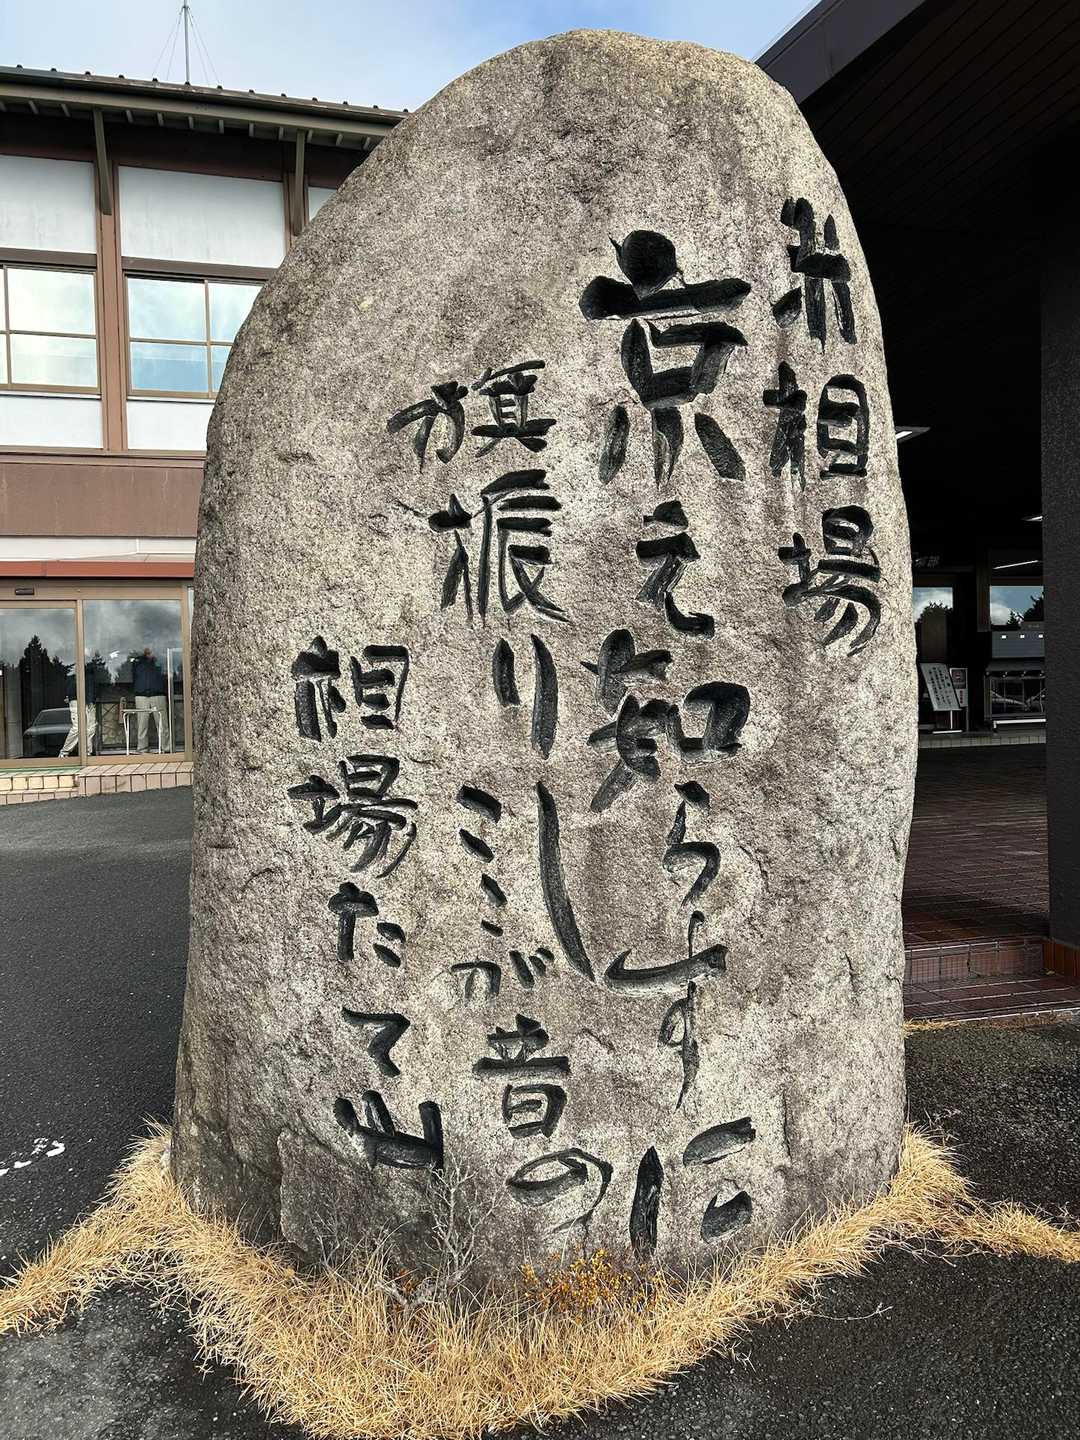 米相場
京え知らすに
旗振りしここが昔の
相場たて山